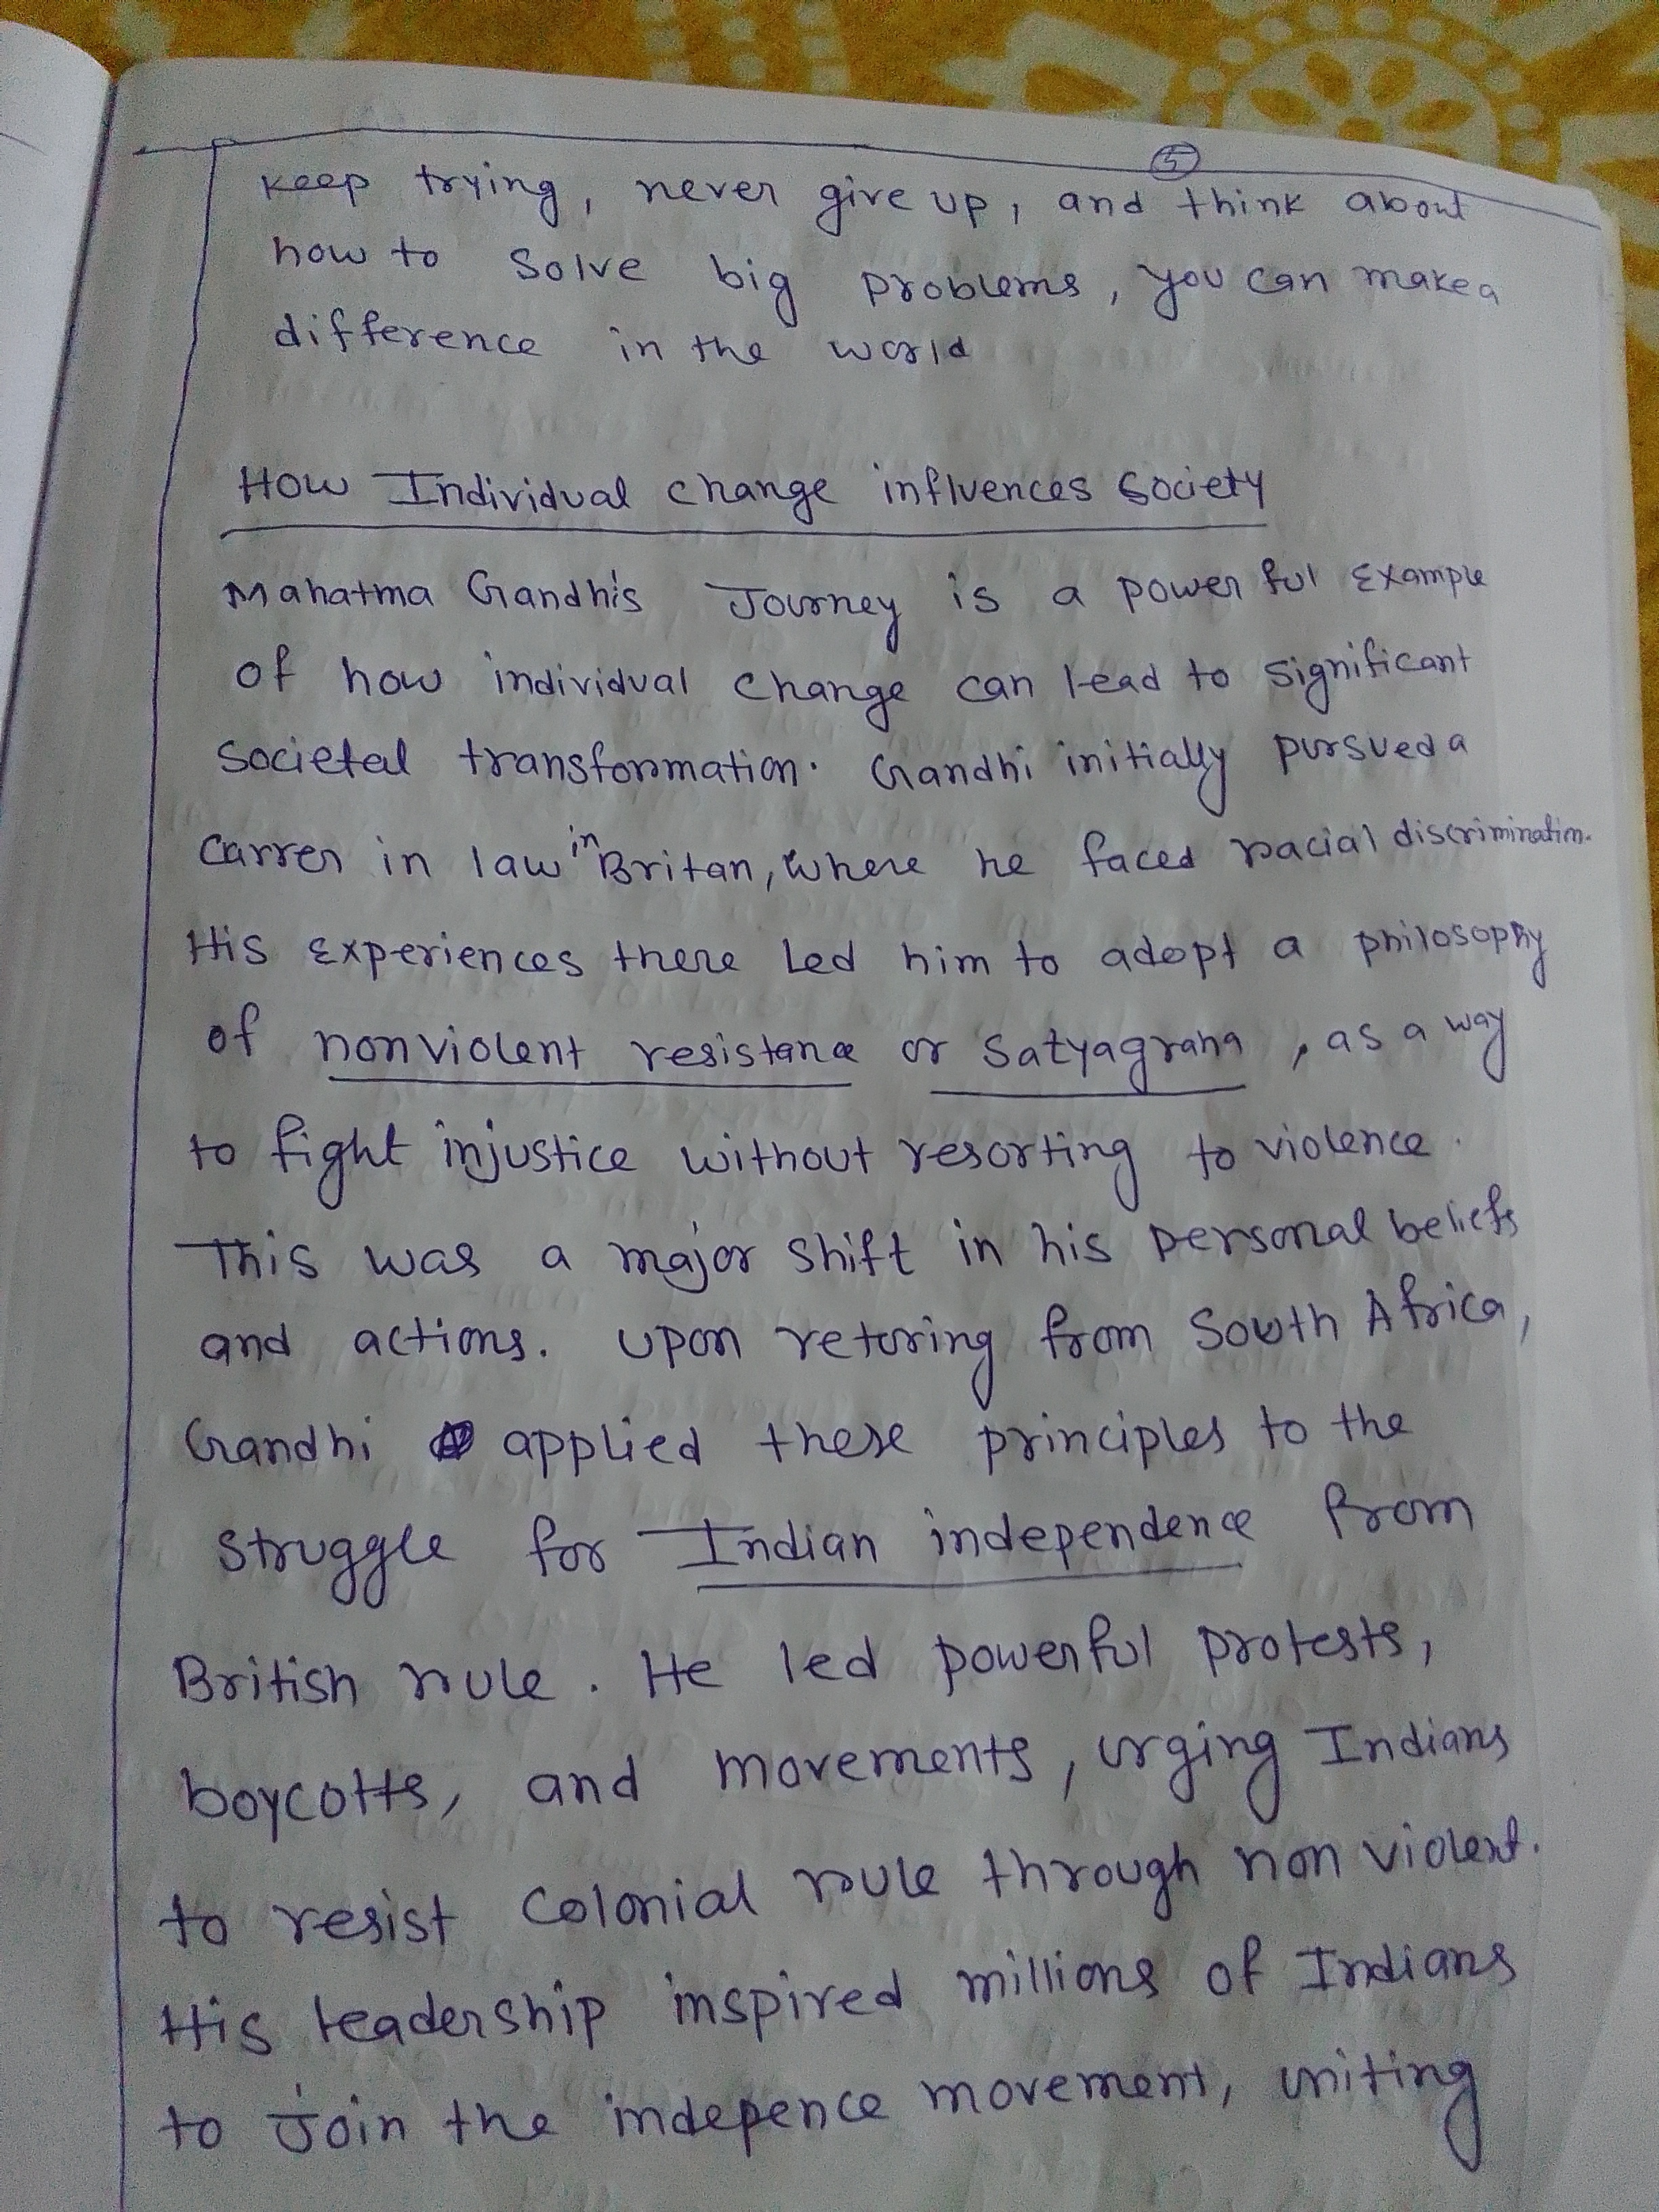 5
keep trying, never give up, and think about
how to solve big problems, you can make a
difference in the world
How Individual change influences Society
Mahatma Gandhi's Journey is a powerful Example
of how individual change can lead to significant
societal transformation. Gandhi initially pursued a
carrer in law in Britan, where he faced racial discrimination.
His Experiences there Led him to adopt a philosophy
of nonviolent resistance or Satyagraha, as a way
to fight injustice without resorting to violence.
This was a major shift in his personal beliefs
and actions. Upon returing from South Africa,
Gandhi applied these principles to the
struggle for Indian independence from
British rule. He led powerful protests,
boycotts, and movements, urging Indians
to resist colonial rule through non violent.
His leadership inspired millions of Indians
to Join the indepence movement, uniting